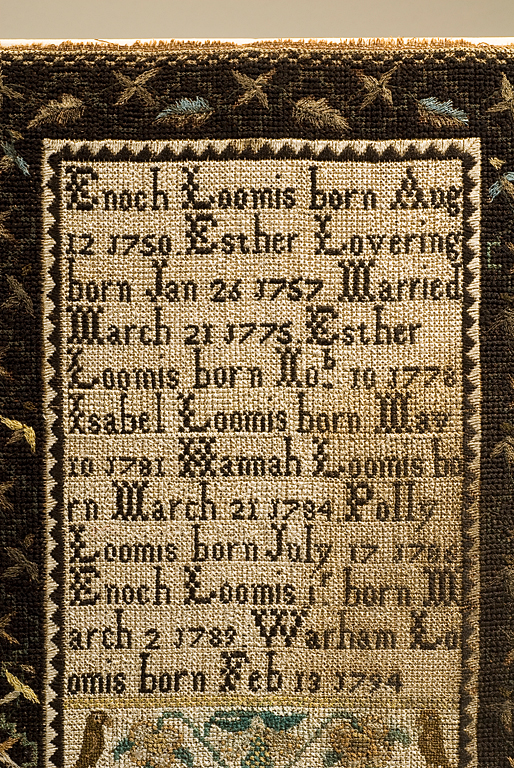 Enoch Loomis born Aug
12 1750 Esther Lovering
born Jan 26 1757 Married
March 21 1775 Esther
Loomis born Noᵇ 10 1778
Isabel Loomis born May
10 1781 Hannah Loomis bo
rn March 21 1784 Polly
Loomis born July 17 1786
Enoch Loomis jʳ born M
arch 2 1789 Warham Lo
omis born Feb 13 1794